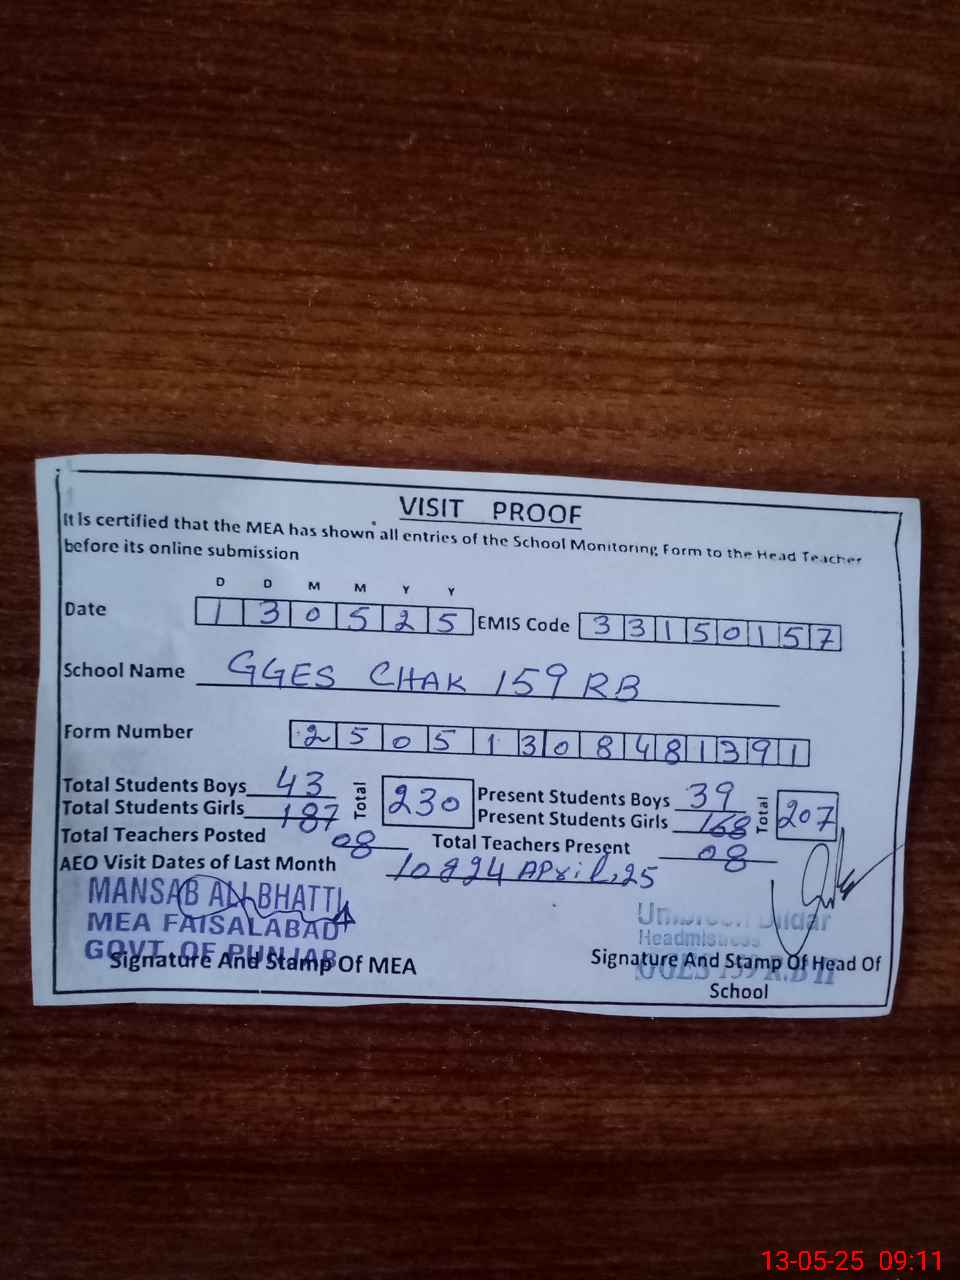 VISIT PROOF
It Is certified that the MEA has shown all entries of the School Monitoring Form to the Head Teacher
before its online submission
D D M M Y Y
Date 1 3 0 5 2 5 EMIS Code 3 3 1 5 0 1 5 7
School Name GGES CHAK 159 RB
Form Number 2 5 0 5 1 3 0 8 4 8 1 3 9 1
Total Students Boys 43 Total 230 Present Students Boys 39 Total 207
Total Students Girls 187 Present Students Girls 168
Total Teachers Posted 08 Total Teachers Present 08
AEO Visit Dates of Last Month 10 & 24 April, 25
MANSAB ALI BHATTI
MEA FAISALABAD
GOVT. OF PUNJAB
Signature And Stamp Of MEA
Headmistress
GGES 159 R.B II
Signature And Stamp Of Head Of
School
13-05-25 09:11